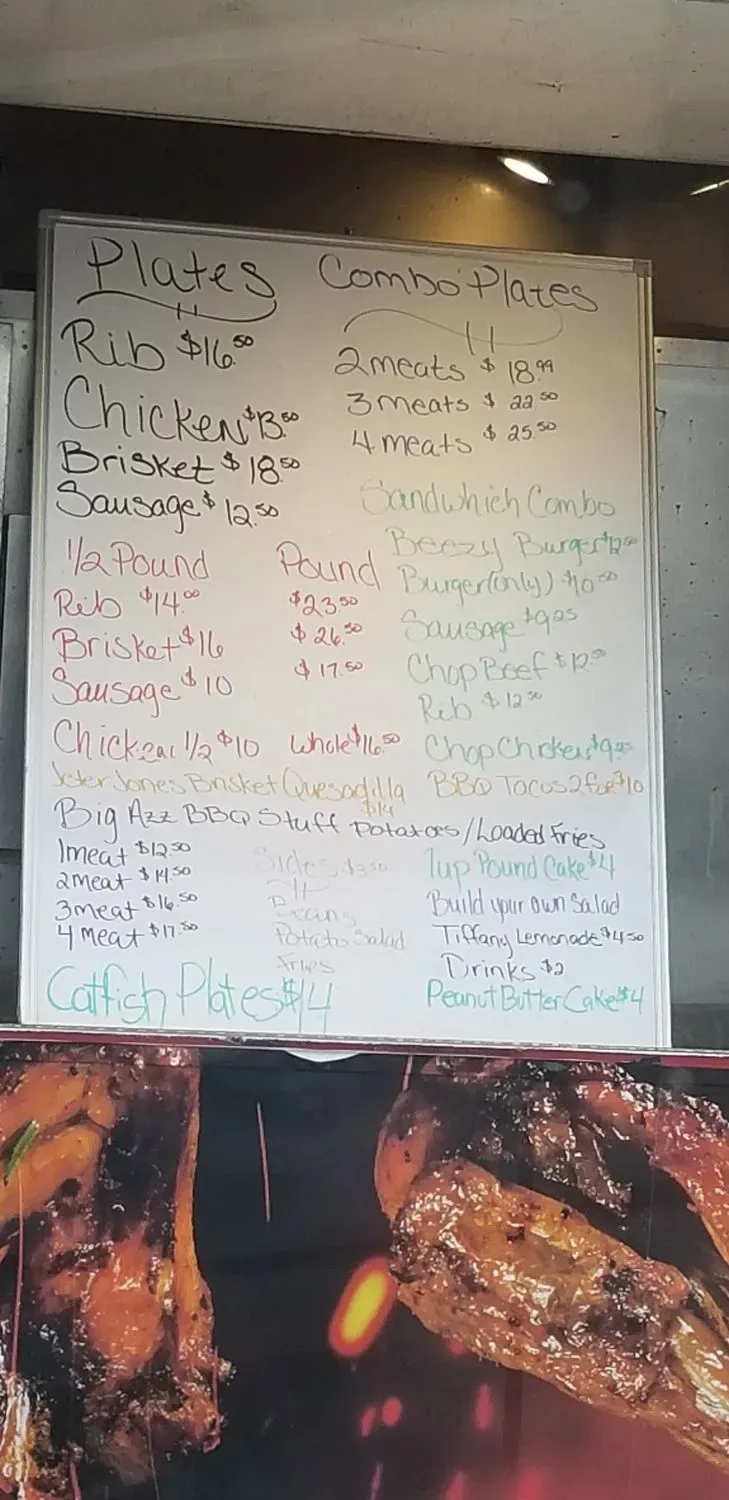 Plates
Rib $16.50
Chicken $13.50
Brisket $18.50
Sausage $12.50
Combo Plates
2 meats $18.99
3 meats $22.50
4 meats $25.50
1/2 Pound Pound
Rib $14.00 $23.50
Brisket $16 $26.50
Sausage $10 $17.50
Chicken 1/2 $10 Whole $16.50
Sandwhich Combo
Beezy Burger
Burger (only) $10.50
Sausage $9.25
Chop Beef
Rib $12.50
Chop Chicken
Jeter Jones Brisket Quesadilla
$14
BBQ Tacos 2 for $10
Big Azz BBQ Stuff Potatoes/Loaded Fries
1 meat $12.50
2 meat $14.50
3 meat $16.50
4 meat $17.50
Sides $3.50
Beans
Potato Salad
Fries
1up Pound Cake $4
Build your own Salad
Tiffany Lemonade $4.50
Drinks $2
Peanut Butter Cake $4
Catfish Plates $14